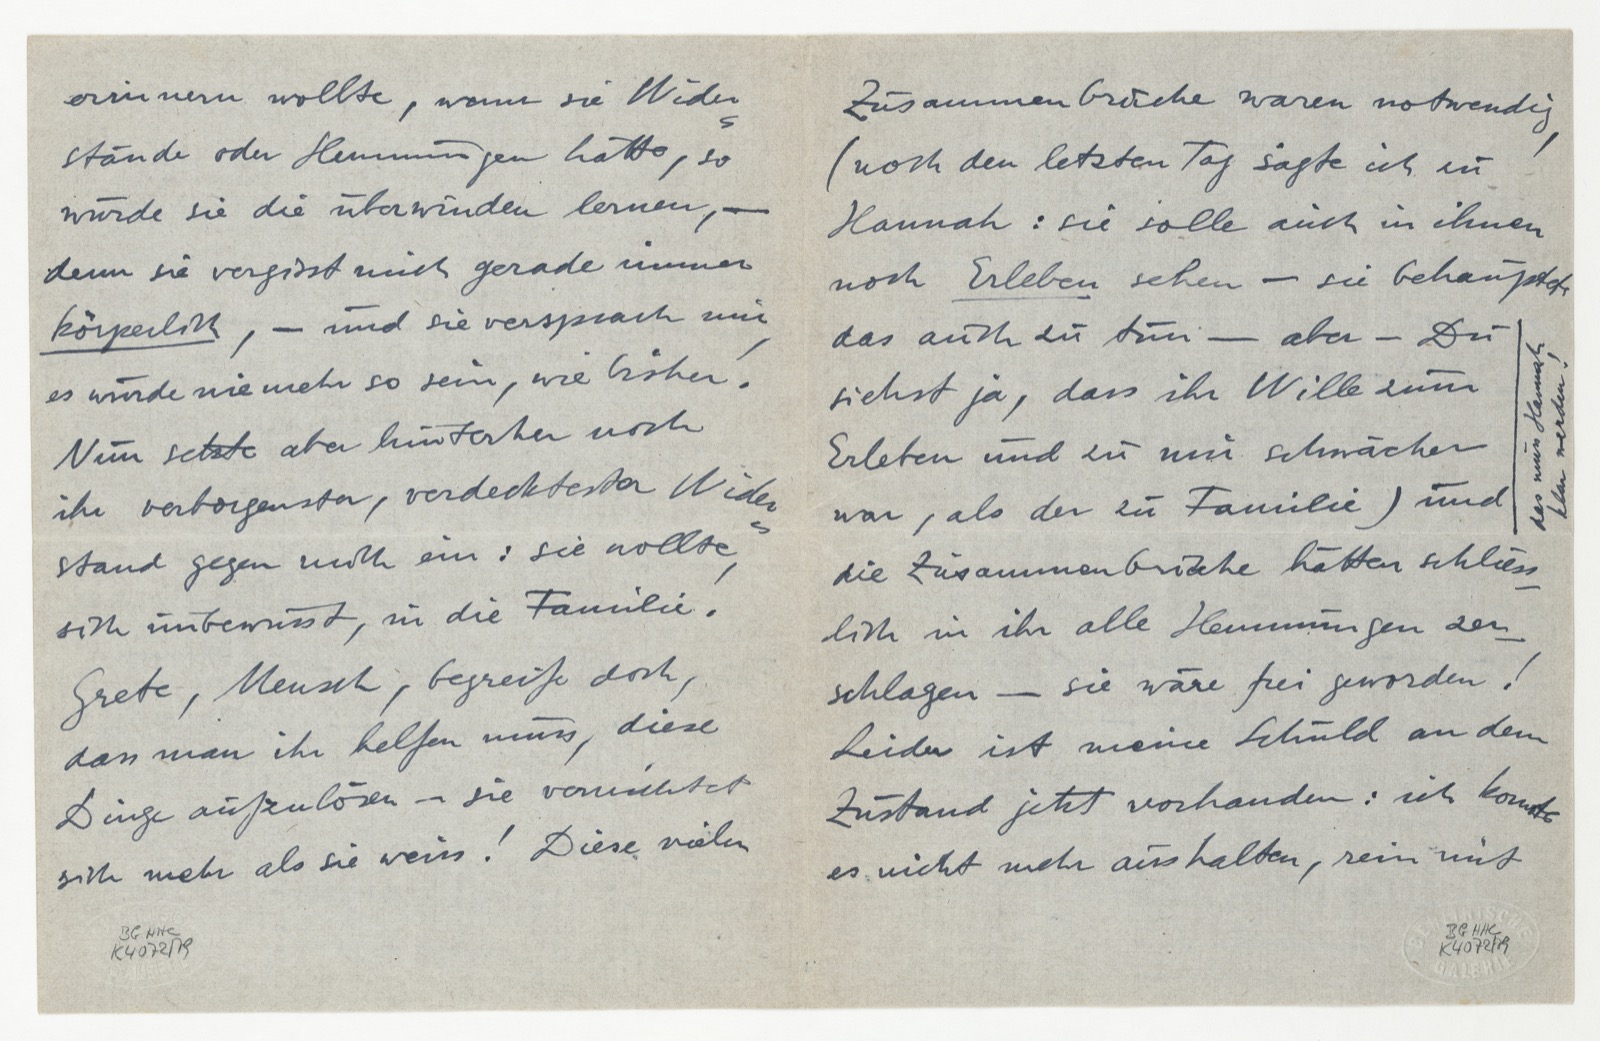 erinnern wollte, wenn sie Wider=
stände oder Hemmungen hätte, so
würde sie die überwinden lernen, —
denn sie vergisst mich gerade immer
körperlich, — und sie versprach mir,
es würde nie mehr so sein, wie bisher!
Nun setzte aber hinterher noch
ihr verborgenster, verdecktester Wider=
stand gegen mich ein: sie wollte,
sich unbewusst, in die Familie!
Grete, Mensch, begreife doch,
dass man ihr helfen muss, diese
Dinge aufzulösen — sie vernichtet
sich mehr als sie weiss! Diese vielen
BG HHC
K4072/79
Zusammenbrüche waren notwendig,
(noch den letzten Tag sagte ich zu
Hannah: sie solle auch in ihnen
noch Erleben sehen — sie behauptete
das auch zu tun — aber — Du
siehst ja, dass ihr Wille zum
Erleben und zu mir schwächer
war, als der zu Familie) und
die Zusammenbrüche hätten schliess-
lich in ihr alle Hemmungen zer-
schlagen — sie wäre frei geworden!
Leider ist meine Schuld an dem
Zustand jetzt vorhanden: ich konnte
es nicht mehr aushalten, rein mit
das muss Hannah
klar werden!
BG HHC
K4072/79
BERLINISCHE
GALERIE